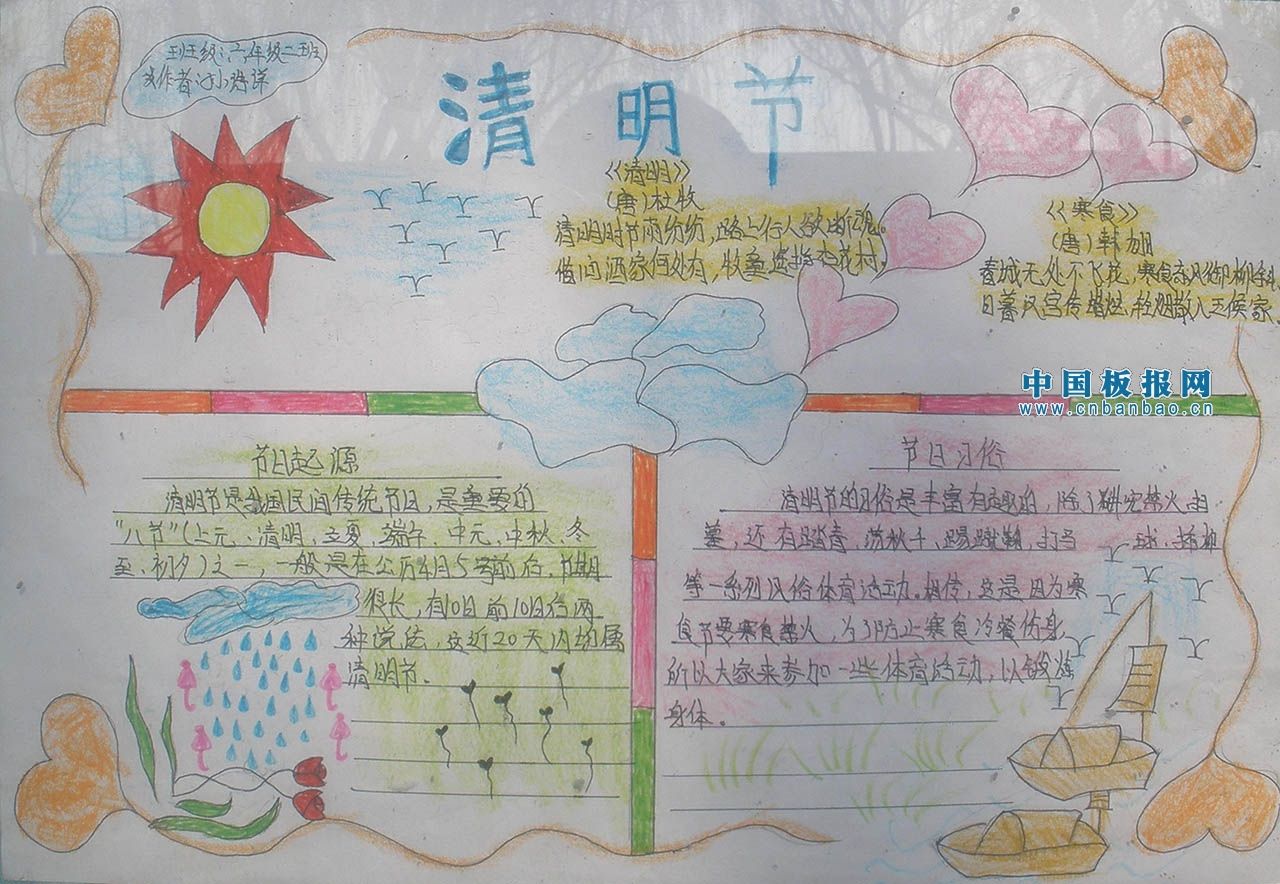 班级:六年级二班
作者
清明节
《清明》
(唐)杜牧
清明时节雨纷纷,路上行人欲断魂。
借问酒家何处有,牧童遥指杏花村。
《寒食》
(唐)韩翃
春城无处不飞花,寒食东风御柳斜
日暮汉宫传蜡烛,轻烟散入五候家.
中国板报网
www.cnbanbao.cn
节日起源
清明节是我国民间传统节日,是重要的
“八节”(上元、清明、立夏、端午、中元、中秋、冬
至、初夕)之一,一般是在公历4月5号前后,节期
很长,有10日前10日后两
种说法,这近20天内均属
清明节.
节日习俗
清明节的习俗是丰富有趣的,除了讲究禁火、扫
墓,还有踏青、荡秋千、踢蹴鞠、打马球、插柳
等一系列风俗体育活动。相传,这是因为寒
食节要寒食禁火,为了防止寒食冷餐伤身,
所以大家来参加一些体育活动,以锻炼
身体。